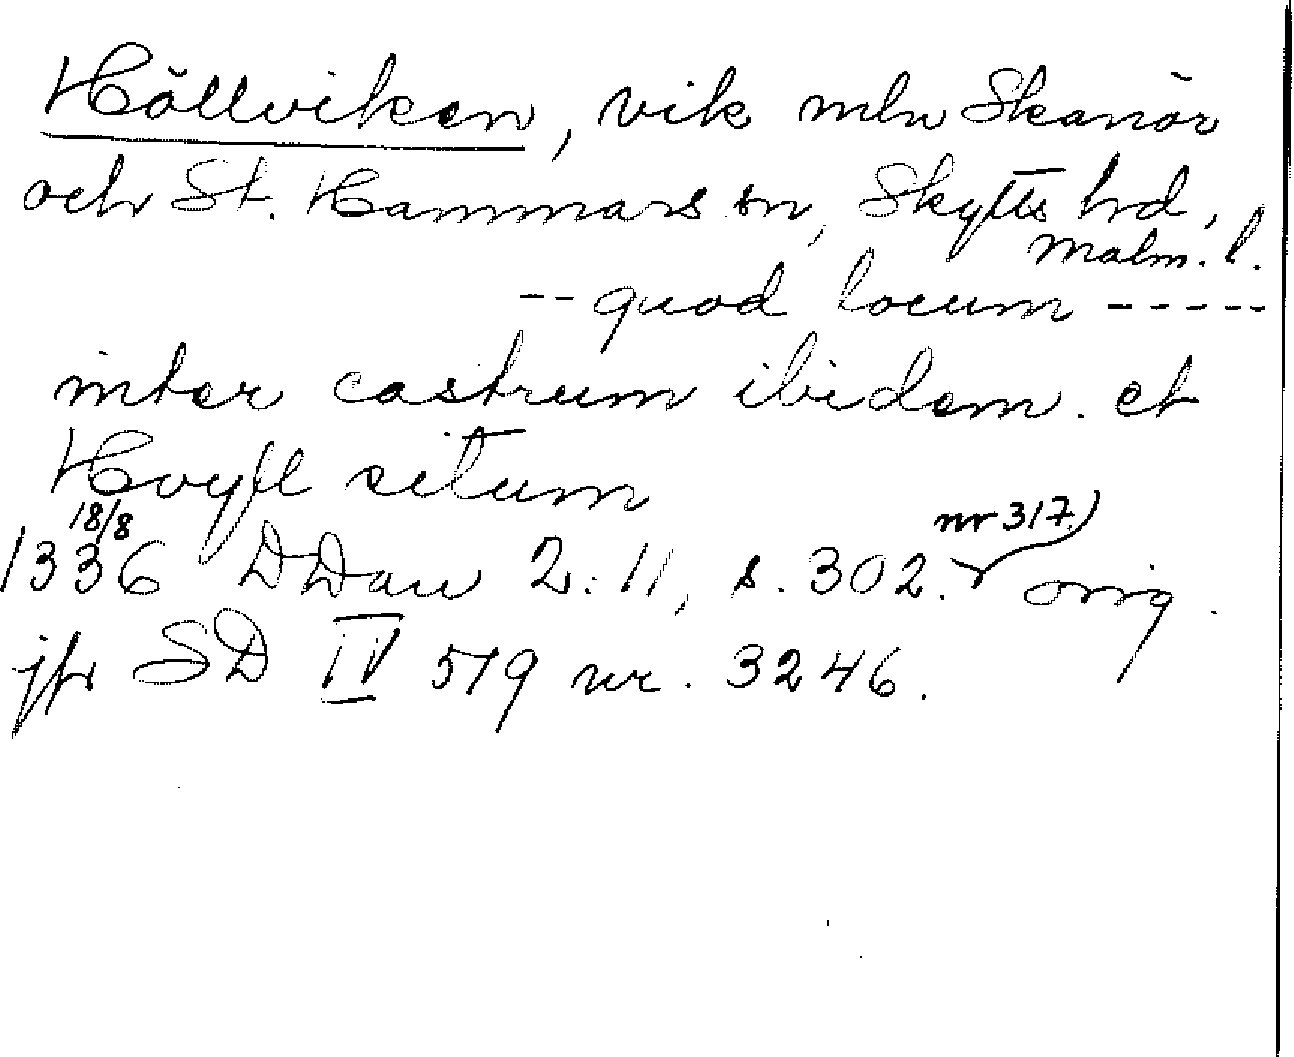 Höllviken, vik mln Skanör
och St. Hammars sn, Skytts hd,
Malm. l.
-- quod locum -----
inter castrum ibidem et
Hvyll situm
18/8
1336 DDan 2:11, s. 302. nr 317) orig.
jfr SD IV 519 nr. 3246.